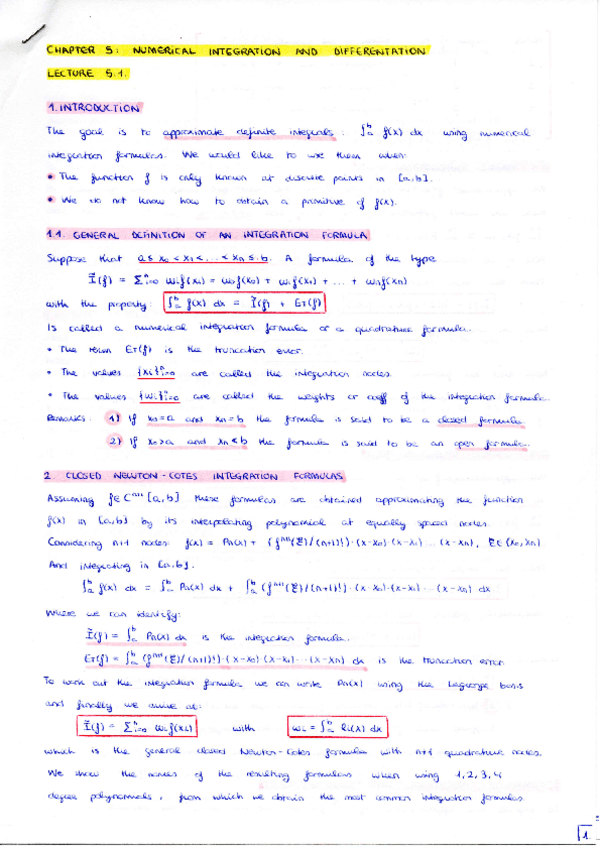 CHAPTER 5: NUMERICAL INTEGRATION AND DIFFERENTATION
LECTURE 5.1.
1. INTRODUCTION
The goal is to approximate definite integrals: ∫ₐᵇ f(x) dx using numerical
integration formulas. We would like to use them when:
• The function f is only known at discrete points in [a,b].
• We do not know how to obtain a primitive of f(x).
1.1. GENERAL DEFINITION OF AN INTEGRATION FORMULA
Suppose that a ≤ x₀ < x₁ < ... < xₙ ≤ b. A formula of the type
Ĩ(f) = Σⁿᵢ₌₀ wᵢf(xᵢ) = w₀f(x₀) + w₁f(x₁) + ... + wₙf(xₙ)
with the property: ∫ₐᵇ f(x) dx = Ĩ(f) + E_T(f)
Is called a numerical integration formula or a quadrature formula.
• The term E_T(f) is the truncation error.
• The values {xᵢ}ⁿᵢ₌₀ are called the integration nodes.
• The values {wᵢ}ⁿᵢ₌₀ are called the weights or coeff of the integration formula.
Remarks: 1) If x₀=a and xₙ=b the formula is said to be a closed formula.
2) If x₀>a and xₙ<b the formula is said to be an open formula.
2. CLOSED NEWTON-COTES INTEGRATION FORMULAS
Assuming f∈Cⁿ⁺¹[a,b] these formulas are obtained approximating the function
f(x) in [a,b] by its interpolating polynomial at equally spaced nodes.
Considering n+1 nodes: f(x) = Pn(x) + (fⁿ⁺¹(ξ)/(n+1)!)·(x-x₀)·(x-x₁)...(x-xₙ), ξ∈(x₀,xₙ)
And integrating in [a,b].
∫ₐᵇ f(x) dx = ∫ₐᵇ Pn(x) dx + ∫ₐᵇ (fⁿ⁺¹(ξ)/(n+1)!)·(x-x₀)·(x-x₁)...(x-xₙ) dx
Where we can identify:
Ĩ(f) = ∫ₐᵇ Pn(x) dx is the integration formula.
E_T(f) = ∫ₐᵇ (fⁿ⁺¹(ξ)/(n+1)!)·(x-x₀)(x-x₁)...(x-xₙ) dx is the truncation error
To work out the integration formula we can write Pn(x) using the Lagrange basis
and finally we arrive at:
Ĩ(f) = Σⁿᵢ₌₀ wᵢf(xᵢ) with wᵢ = ∫ₐᵇ ℓᵢ(x) dx
which is the general closed Newton-Cotes formula with n+1 quadrature nodes.
We show the names of the resulting formulas when using 1,2,3,4
degree polynomials, from which we obtain the most common integration formulas.
1